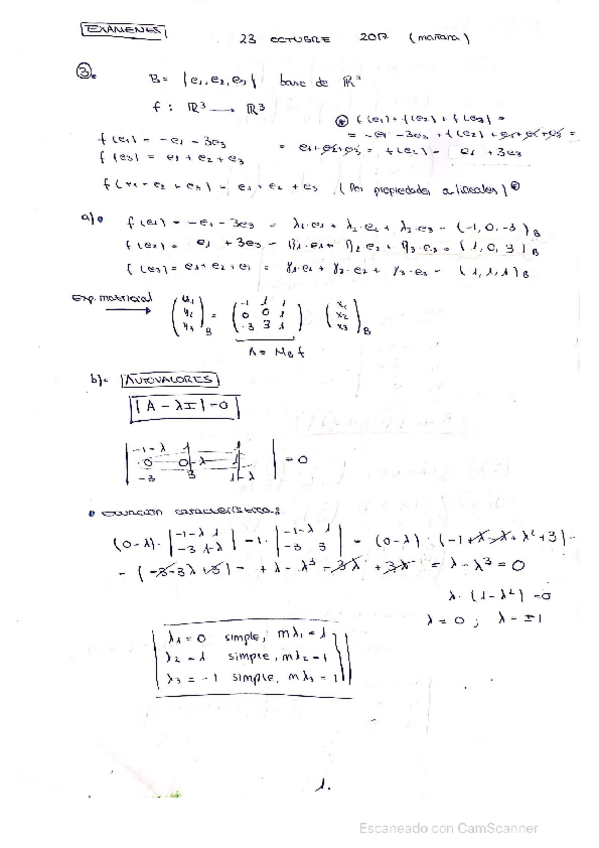 EXÁMENES
23 OCTUBRE 2017 (mañana)
3.
B = {e1, e2, e3} base de ℝ³
f : ℝ³ → ℝ³
⊛ f(e1) + f(e2) + f(e3) =
= -e1 - 3e3 + f(e2) + e1 + e2 + e3 =
f(e1) = -e1 - 3e3
= e1 + e2 + e3 = f(e2) = e1 + 3e3
f(e3) = e1 + e2 + e3
f(e1 + e2 + e3) = e1 + e2 + e3 (Por propiedades a. lineales) ⊛
a) f(e1) = -e1 - 3e3 = λ1·e1 + λ2·e2 + λ3·e3 = (-1, 0, -3)B
f(e2) = e1 + 3e3 = η1·e1 + η2 e2 + η3·e3 = (1, 0, 3)B
f(e3) = e1 + e2 + e3 = γ1·e1 + γ2·e2 + γ3·e3 = (1, 1, 1)B
Exp. matricial
y1 -1 1 1 x1
y2 = 0 0 1 x2
y3 B -3 3 1 x3 B
A = MB f
b) AUTOVALORES
|A - λI| = 0
-1-λ 1 1
0 0-λ 1 = 0
-3 3 1-λ
Ecuación característica:
(0-λ)· |-1-λ 1| -1· |-1-λ 1| = (0-λ)·(-1+λ-λ+λ²+3) -
|-3 1-λ| |-3 3|
- (-3-3λ+3) = +λ - λ³ - 3λ + 3λ = λ - λ³ = 0
λ·(1-λ²) = 0
λ = 0 ; λ = ±1
λ1 = 0 simple, mλ1 = 1
λ2 = 1 simple, mλ2 = 1
λ3 = -1 simple, mλ3 = 1
1.
Escaneado con CamScanner